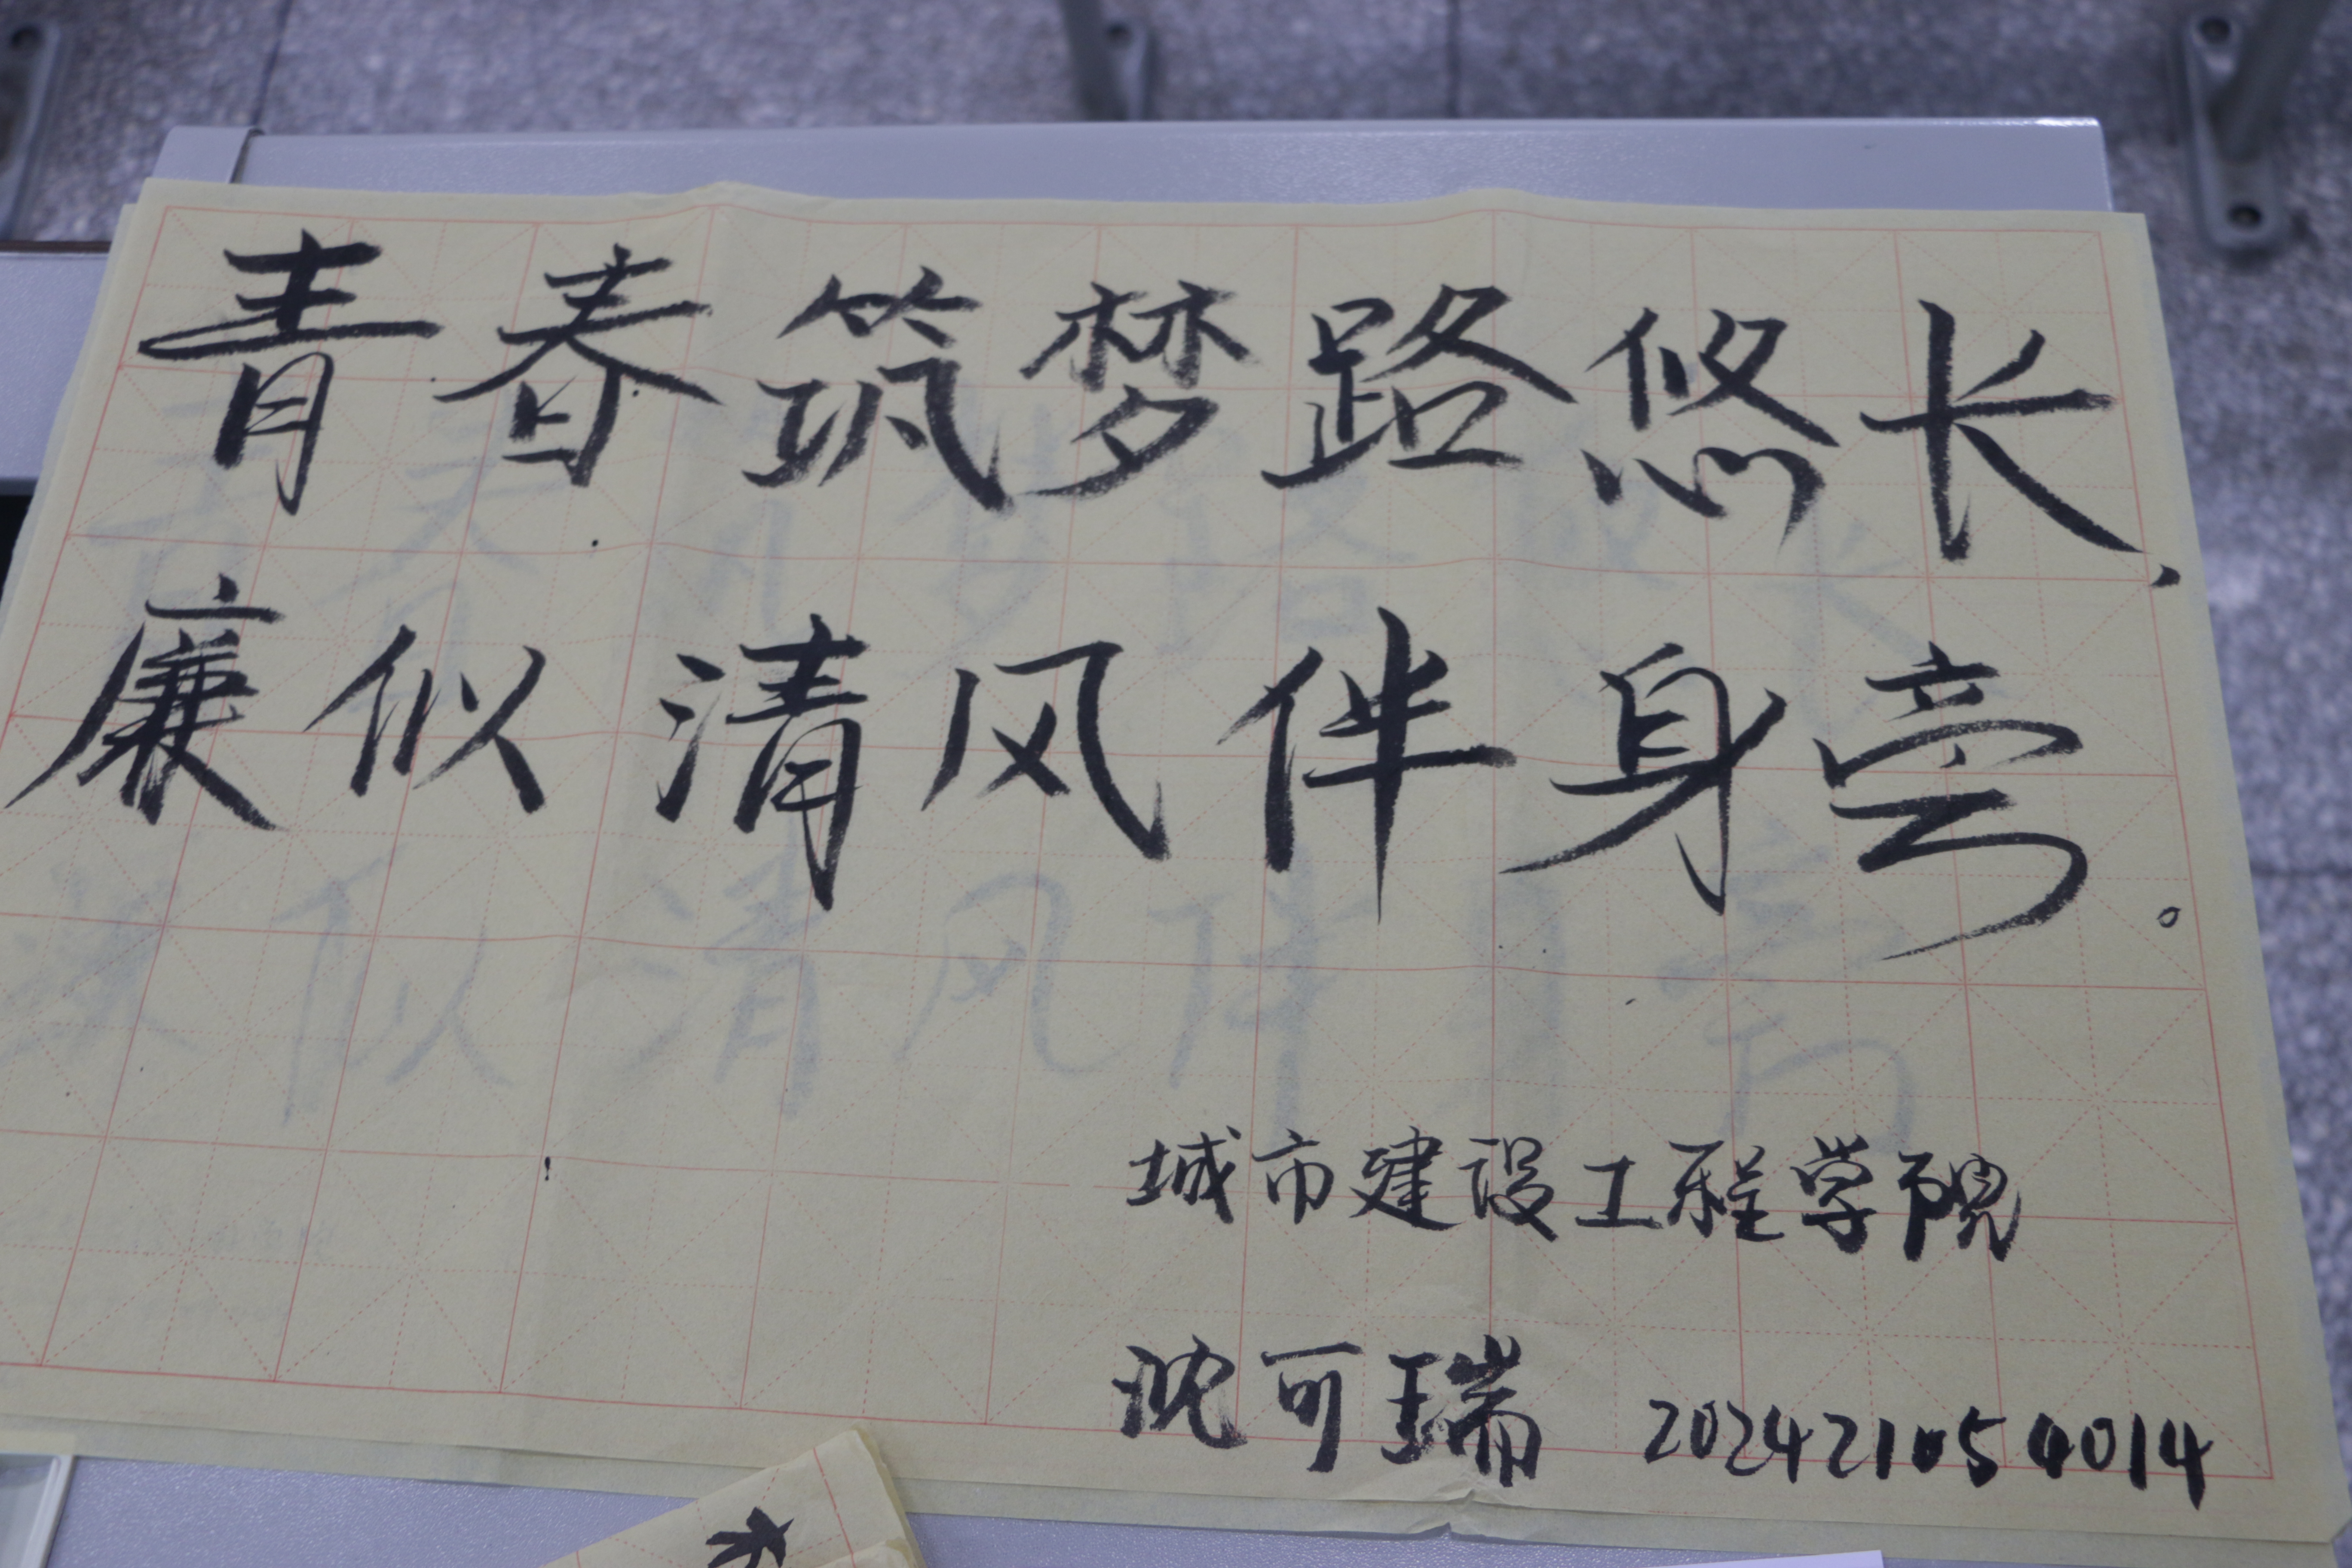 青春筑梦路悠长，
廉似清风伴身旁。
城市建设工程学院
沈可瑞 202421054014